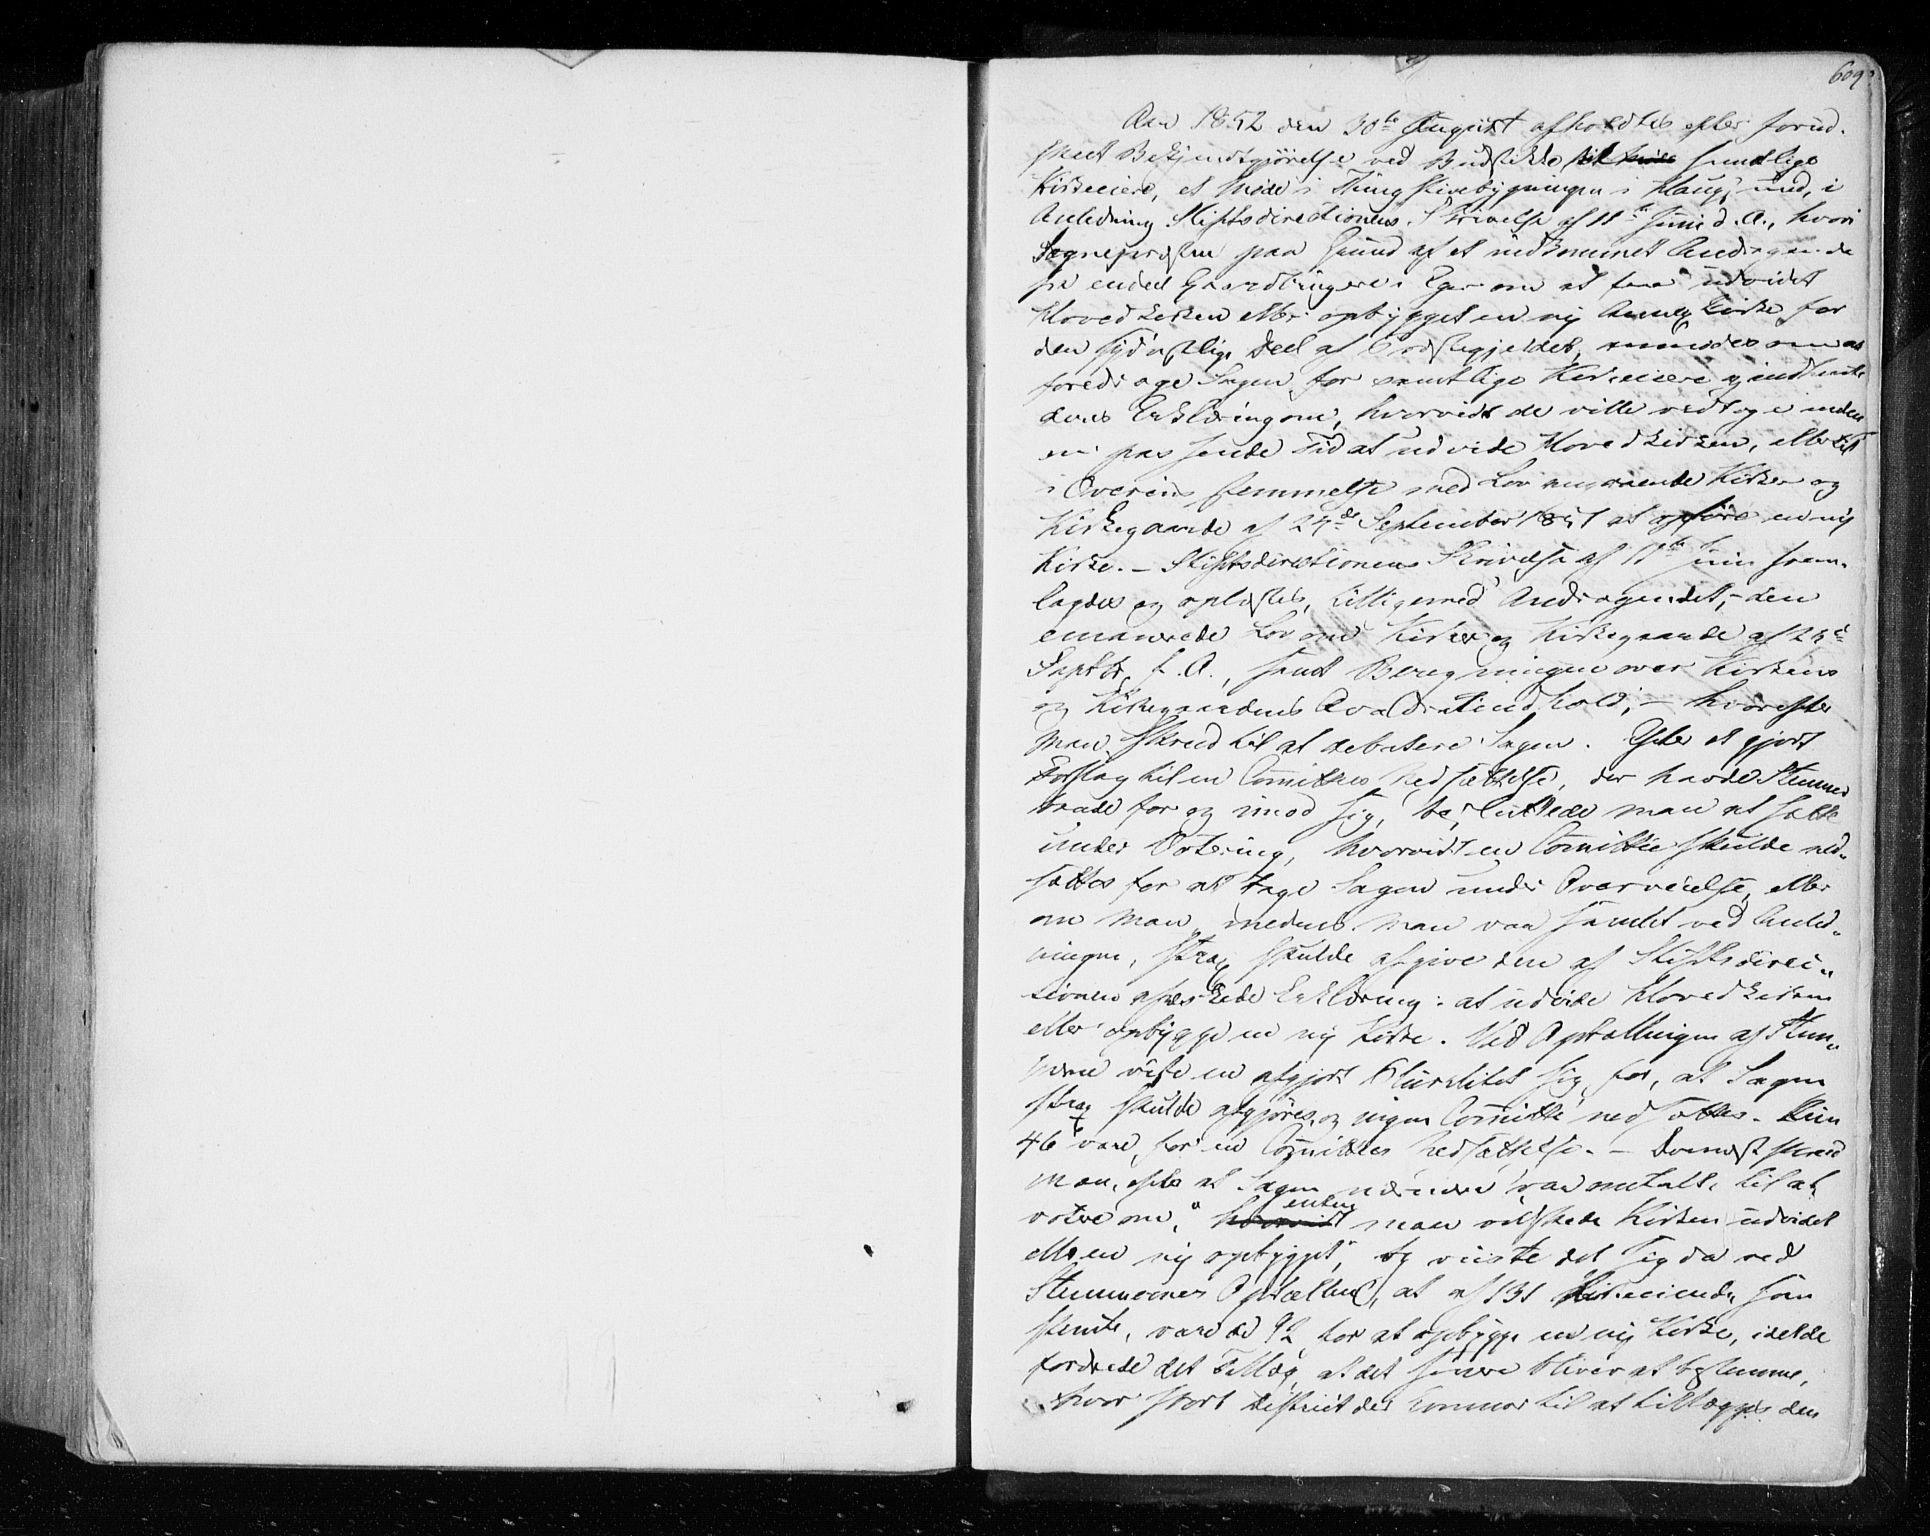 609
Aar 1852 den 30te August afholdtes efter forud-
gaaet Bekjendtgjörelse ved Budstikke samtlige
Kirkeeiere, et Möde i Thingstuebygningen i Haug, i
Anledning Stiftsdirectionens Skrivelse af 11te Juni d. A., hvori
Sognepresten paa Grund af et indkommet Andragende
fra endeel Gaardbrugere i Eger om at faae udvidet
Hovedkirken eller opbygget en ny Annexkirke for
den sydöstlige Deel af Præstegjeldet, anmodes om at
foredrage Sagen for samtlige Kirkeeiere og indhente
deres Erklæring om, hvorvidt de ville vedtage inden
en passende Tid at udvide Hovedkirken, eller
i Overensstemmelse med Lov angaaende Kirker og
Kirkegaarde af 24de September 1851 at opföre en ny
Kirke. - Stiftsdirectionens Skrivelse af 11te Juni frem-
lagdes og oplæstes, tilligemed Andragendet, - den
emanerede Lov om Kirker og Kirkegaarde af 24de
Septbr. f. A., samt Beregningen over Kirkens
og Kirkegaardens Qvadratindhold; - hvorefter
man skred til at debatere Sagen. Efter et gjort
Forslag til en Comittees Nedsættelse, der havde Stemmer
baade for og imod sig, besluttede man at sætte
under Votering, hvorvidt en Comittee skulde ned-
sættes for at tage Sagen under Overveielse, eller
om man, medens man var samlet ved Anled-
ningen, strax skulde afgive den af Stiftsdirec-
tionen afæskede Erklæring: at udvide Hovedkirken
eller opbygge en ny Kirke. Ved Optællingen af Stem-
merne viste en afgjort Pluralitet sig for, at Sagen
strax skulde afgjöres og ingen Comittee nedsættes. Kun
46 vare for en Comittees Nedsættelse. - Dernæst skred
man, efter at Sagen nærmere var omtalt, til at
votere om, " hvorvidt enten man önskede Kirken udvidet
eller en ny opbygget", og viiste det sig da ved
Stemmernes Optælling, at af 131 Kirkeeiende, som
stemte, vare de 92 for at opbygge en ny Kirke, idet de
fordrede det Tillæg, at det senere bliver at bestemme,
hvor stort District der kommer til at tillægges den